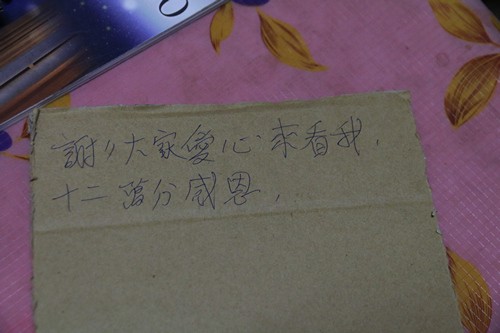 謝〃大家愛心來看我，
十二萬分感恩，